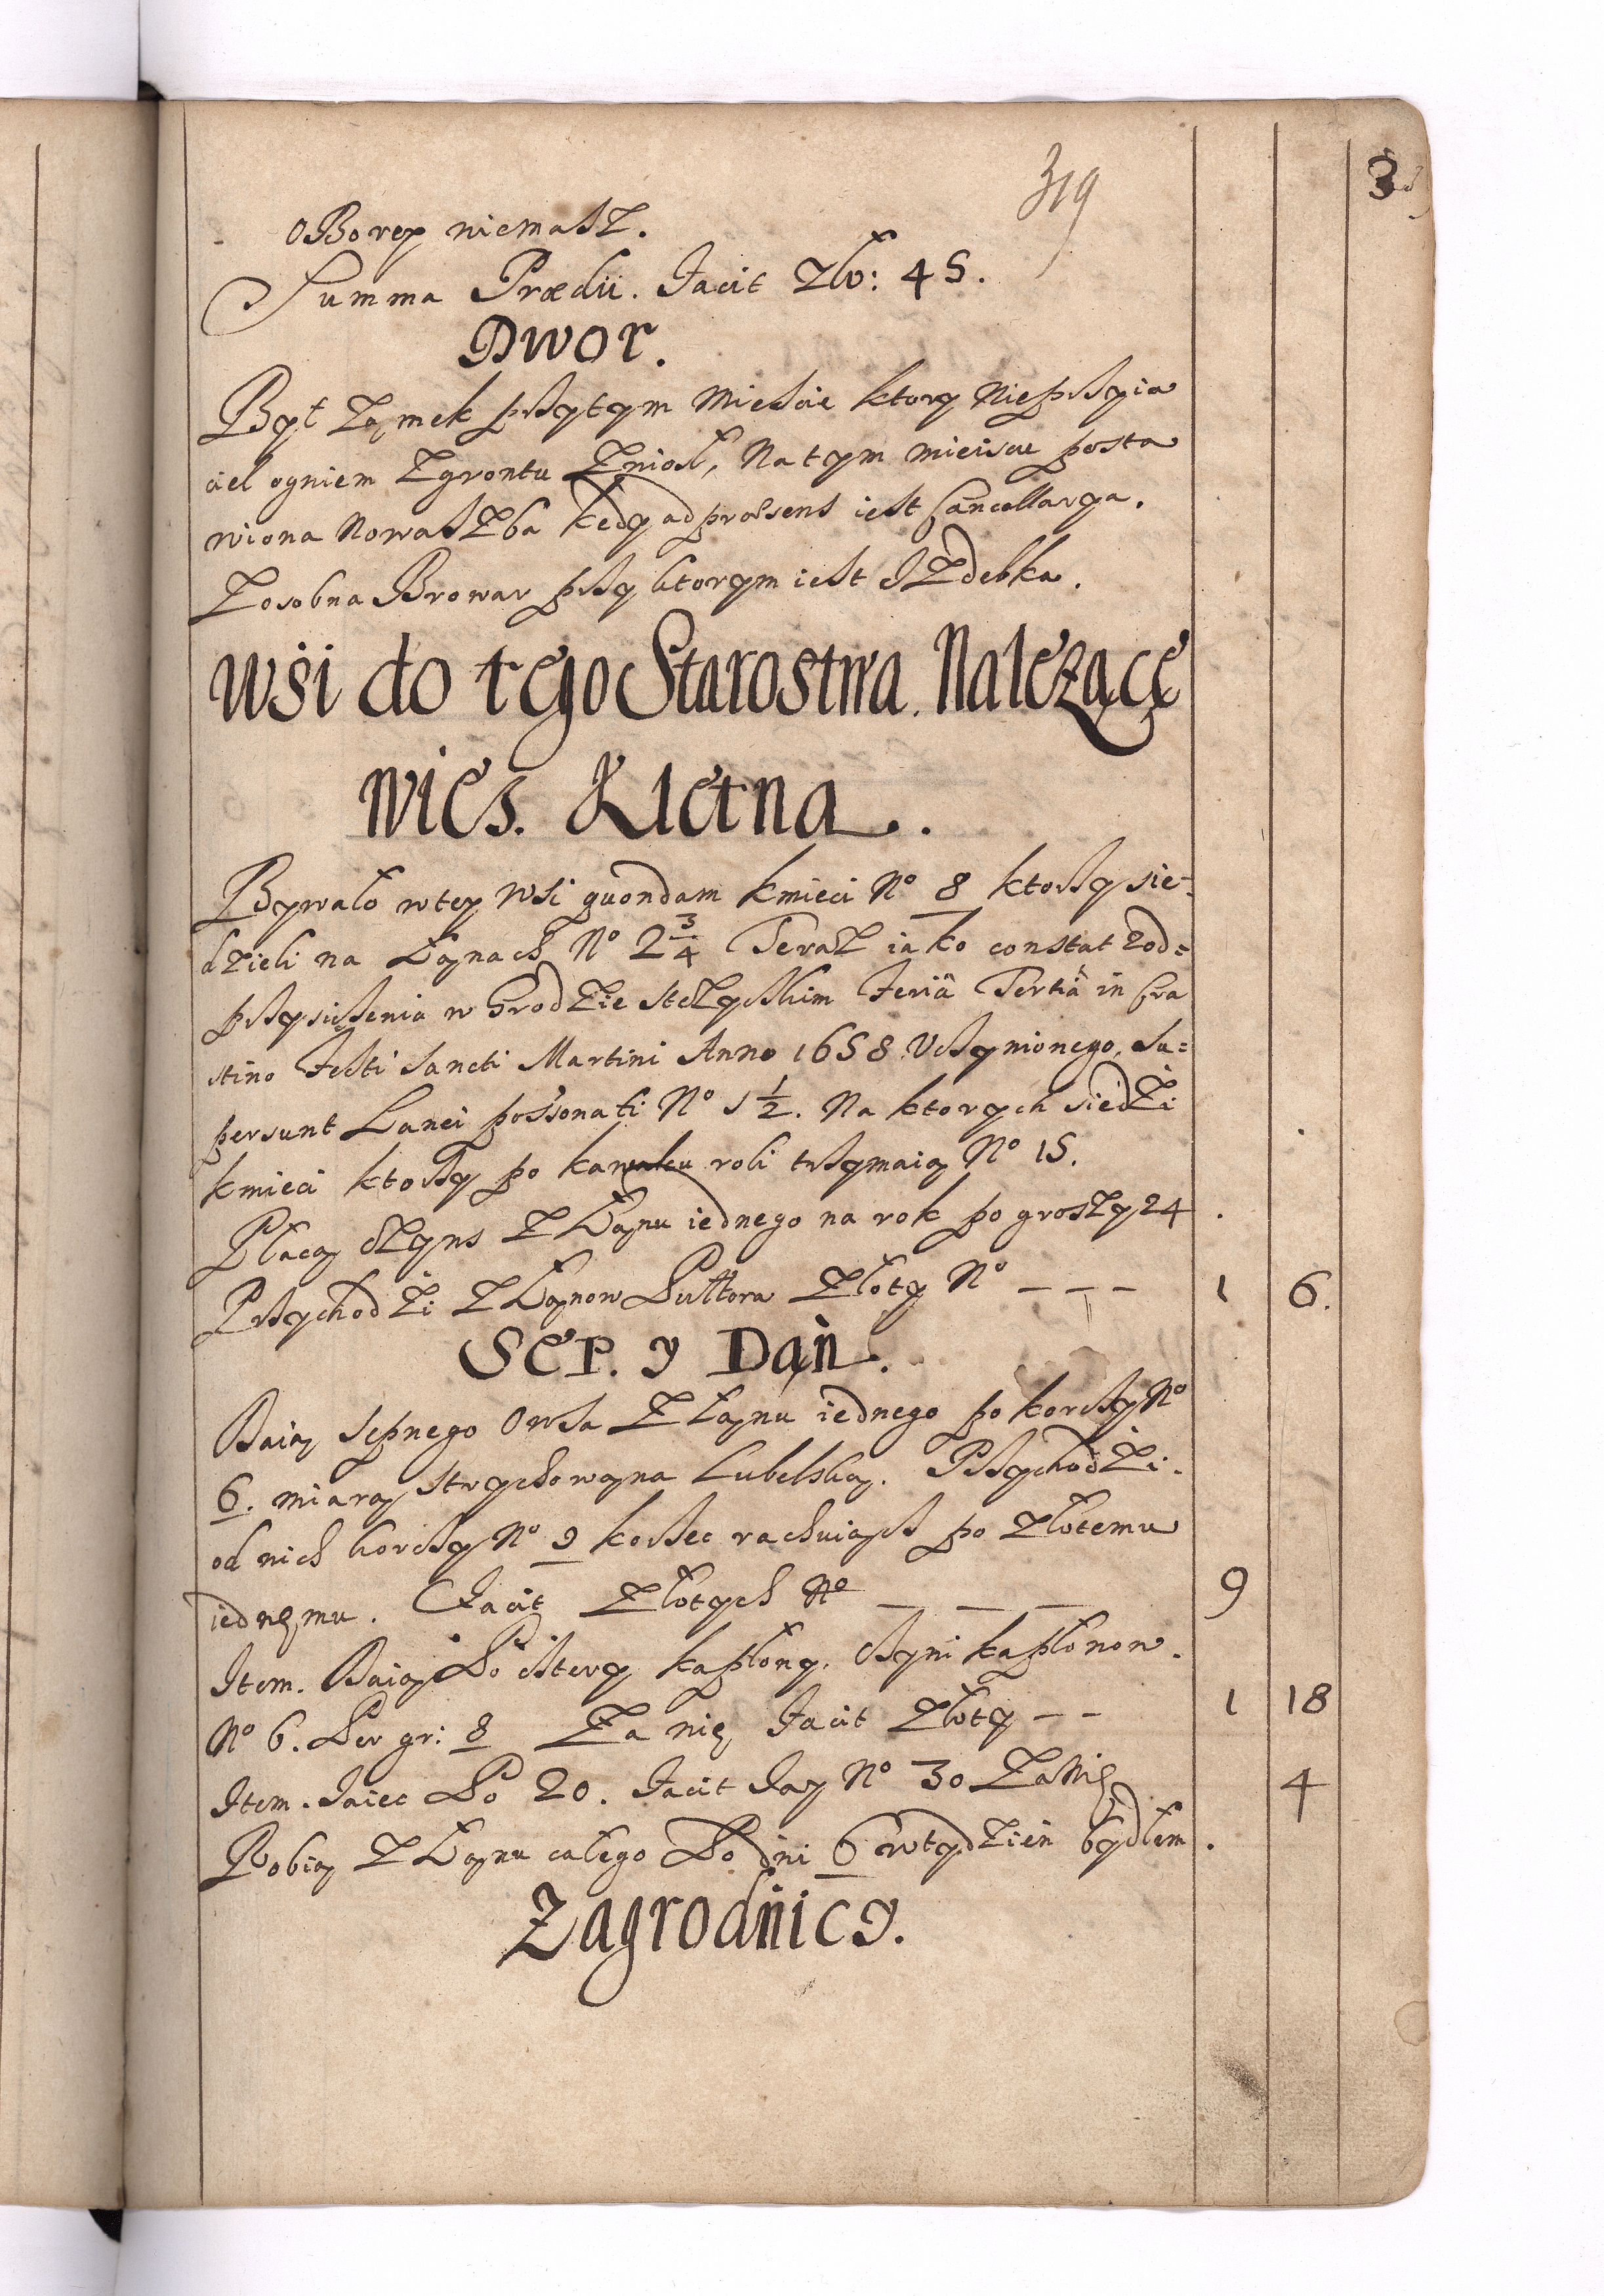 319
3
Oborey niemasz.
Summa Prædii. Facit Zło: 45.
Dwor.
Był Zamek przytym Miescie ktory Nieprzyia
ciel ogniem Zgrontu Zniosł, Na tym mieiscu posta
wiona Nowa Izba kędy ad præsens iest Cancellarya.
Zosobna Browar przy ktorym iest Izdebka.
Wśi do tego Starostwa Należące
Wieś. Kletna.
Bywało wtey Wsi quondam kmieci No 8 ktorzy sie-
dzieli na Łanach No 2 3/4 Teraz iako constat zod=
przysiezenia w Grodzie Stezyckim Feriâ Tertiâ in Cra
stino Festi Sancti Martini Anno 1658 Uczynionego, Su=
persunt Lanei possonati No 1 1/2. Na ktorych siedzi
kmieci ktorzy po kawalcu roli trzymaią No 15.
Płacą czyns Z Łanu iednego na rok po groszy 24 .
Przychodzi Z Łanow Pułtora Złoty No - - - 1 6.
Sep. y Dań.
Daią Sepnego Owsa Z Łanu iednego po korczy No
6. miarą strychowaną Lubelską. Przychodzi.
od nich korczy No 9 korzec rachuiąc po Złotemu
iednemu. Facit Złotych No - - - 9
Item. Daią Po cztery kapłony. Czyni kapłonow.
No 6. Per gr: 8 Za nię Facit Złoty - - 1 18
Item. Jaiec Po 20. Facit Jay No 30 Za Nię 4
Robią Z Łanu całego Po dni 6 wtydzień bydłem .
Zagrodnicy.